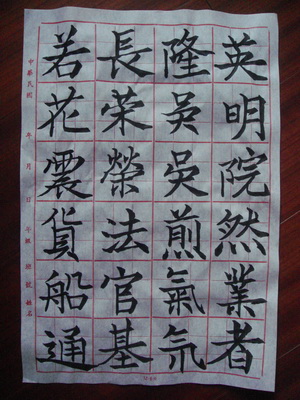 英明院然業者
隆吳吳煎氣
長荣榮法官基
若花震貨船通
中華民國 年 月 日 年級 班 號 姓名